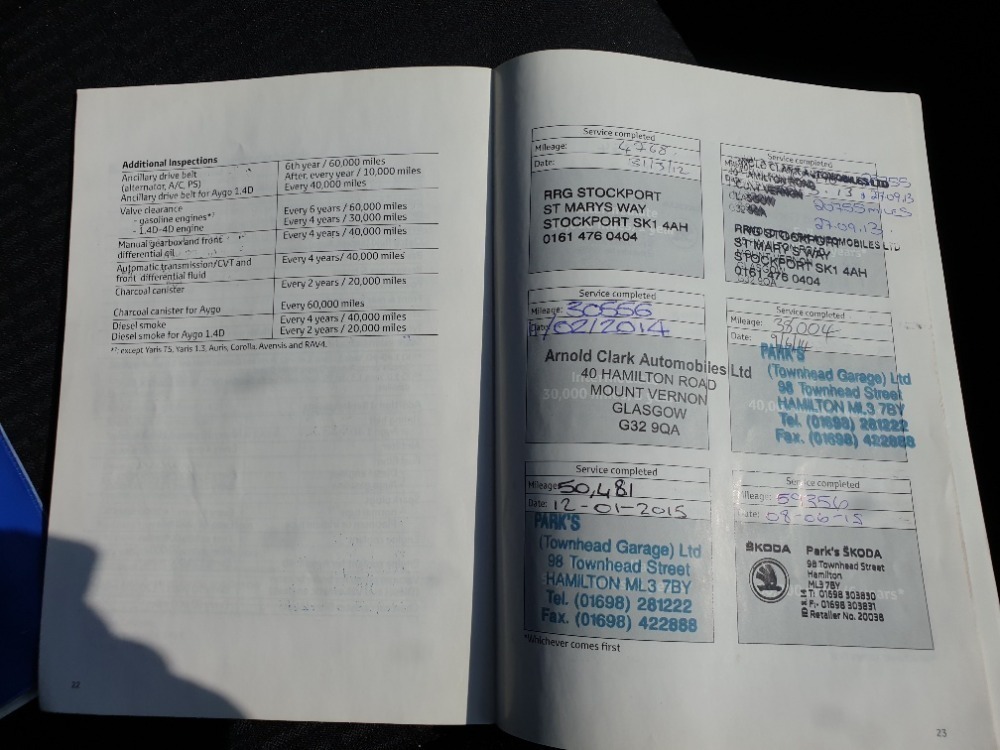 Additional Inspections
Ancillary drive belt 6th year / 60,000 miles
(alternator, A/C, PS) After, every year / 10,000 miles
Ancillary drive belt for Aygo 1.4D Every 40,000 miles
Valve clearance
- gasoline engines*² Every 6 years / 60,000 miles
- 1.4D-4D engine Every 4 years / 30,000 miles
Manual gearbox and front Every 4 years / 40,000 miles
differential oil
Automatic transmission/CVT and Every 4 years/ 40,000 miles
front differential fluid
Charcoal canister Every 2 years / 20,000 miles
Charcoal canister for Aygo Every 60,000 miles
Diesel smoke Every 4 years / 40,000 miles
Diesel smoke for Aygo 1.4D Every 2 years / 20,000 miles
*²: except Yaris TS, Yaris 1.3, Auris, Corolla, Avensis and RAV4.
22
Service completed
Mileage:
Date:
RRG STOCKPORT
ST MARYS WAY
STOCKPORT SK1 4AH
0161 476 0404
Service completed
27.09.13
RRG STOCKPORT
ST MARYS WAY
STOCKPORT SK1 4AH
0161 476 0404
Service completed
Mileage: 30556
/02/2014
Arnold Clark Automobiles Ltd
40 HAMILTON ROAD
MOUNT VERNON
GLASGOW
G32 9QA
30,000
Service completed
Mileage: 38004
Date: 9/6/14
PARK'S
(Townhead Garage) Ltd
98 Townhead Street
HAMILTON ML3 7BY
Tel. (01698) 281222
Fax. (01698) 422888
Service completed
Mileage: 50,481
Date: 12-01-2015
PARK'S
(Townhead Garage) Ltd
98 Townhead Street
HAMILTON ML3 7BY
Tel. (01698) 281222
Fax. (01698) 422888
Service completed
Mileage: 59356
Date: 08-06-15
ŠKODA Park's ŠKODA
98 Townhead Street
Hamilton
ML3 7BY
T: 01698 303830
F: 01698 303831
Retailer No. 20038
*Whichever comes first
23